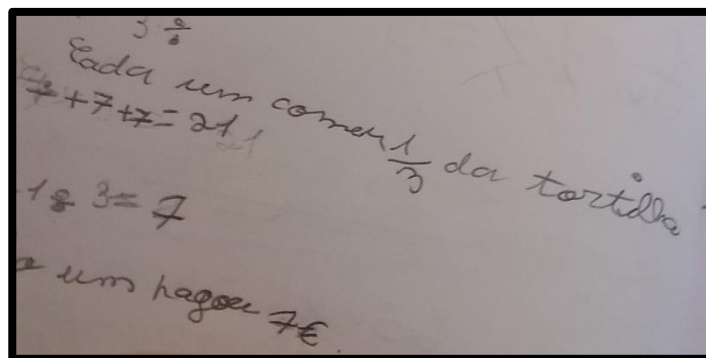 Cada um comeu 1/3 da tortilha
7+7+7=21
1 : 3 = 7
um pagou 7€.